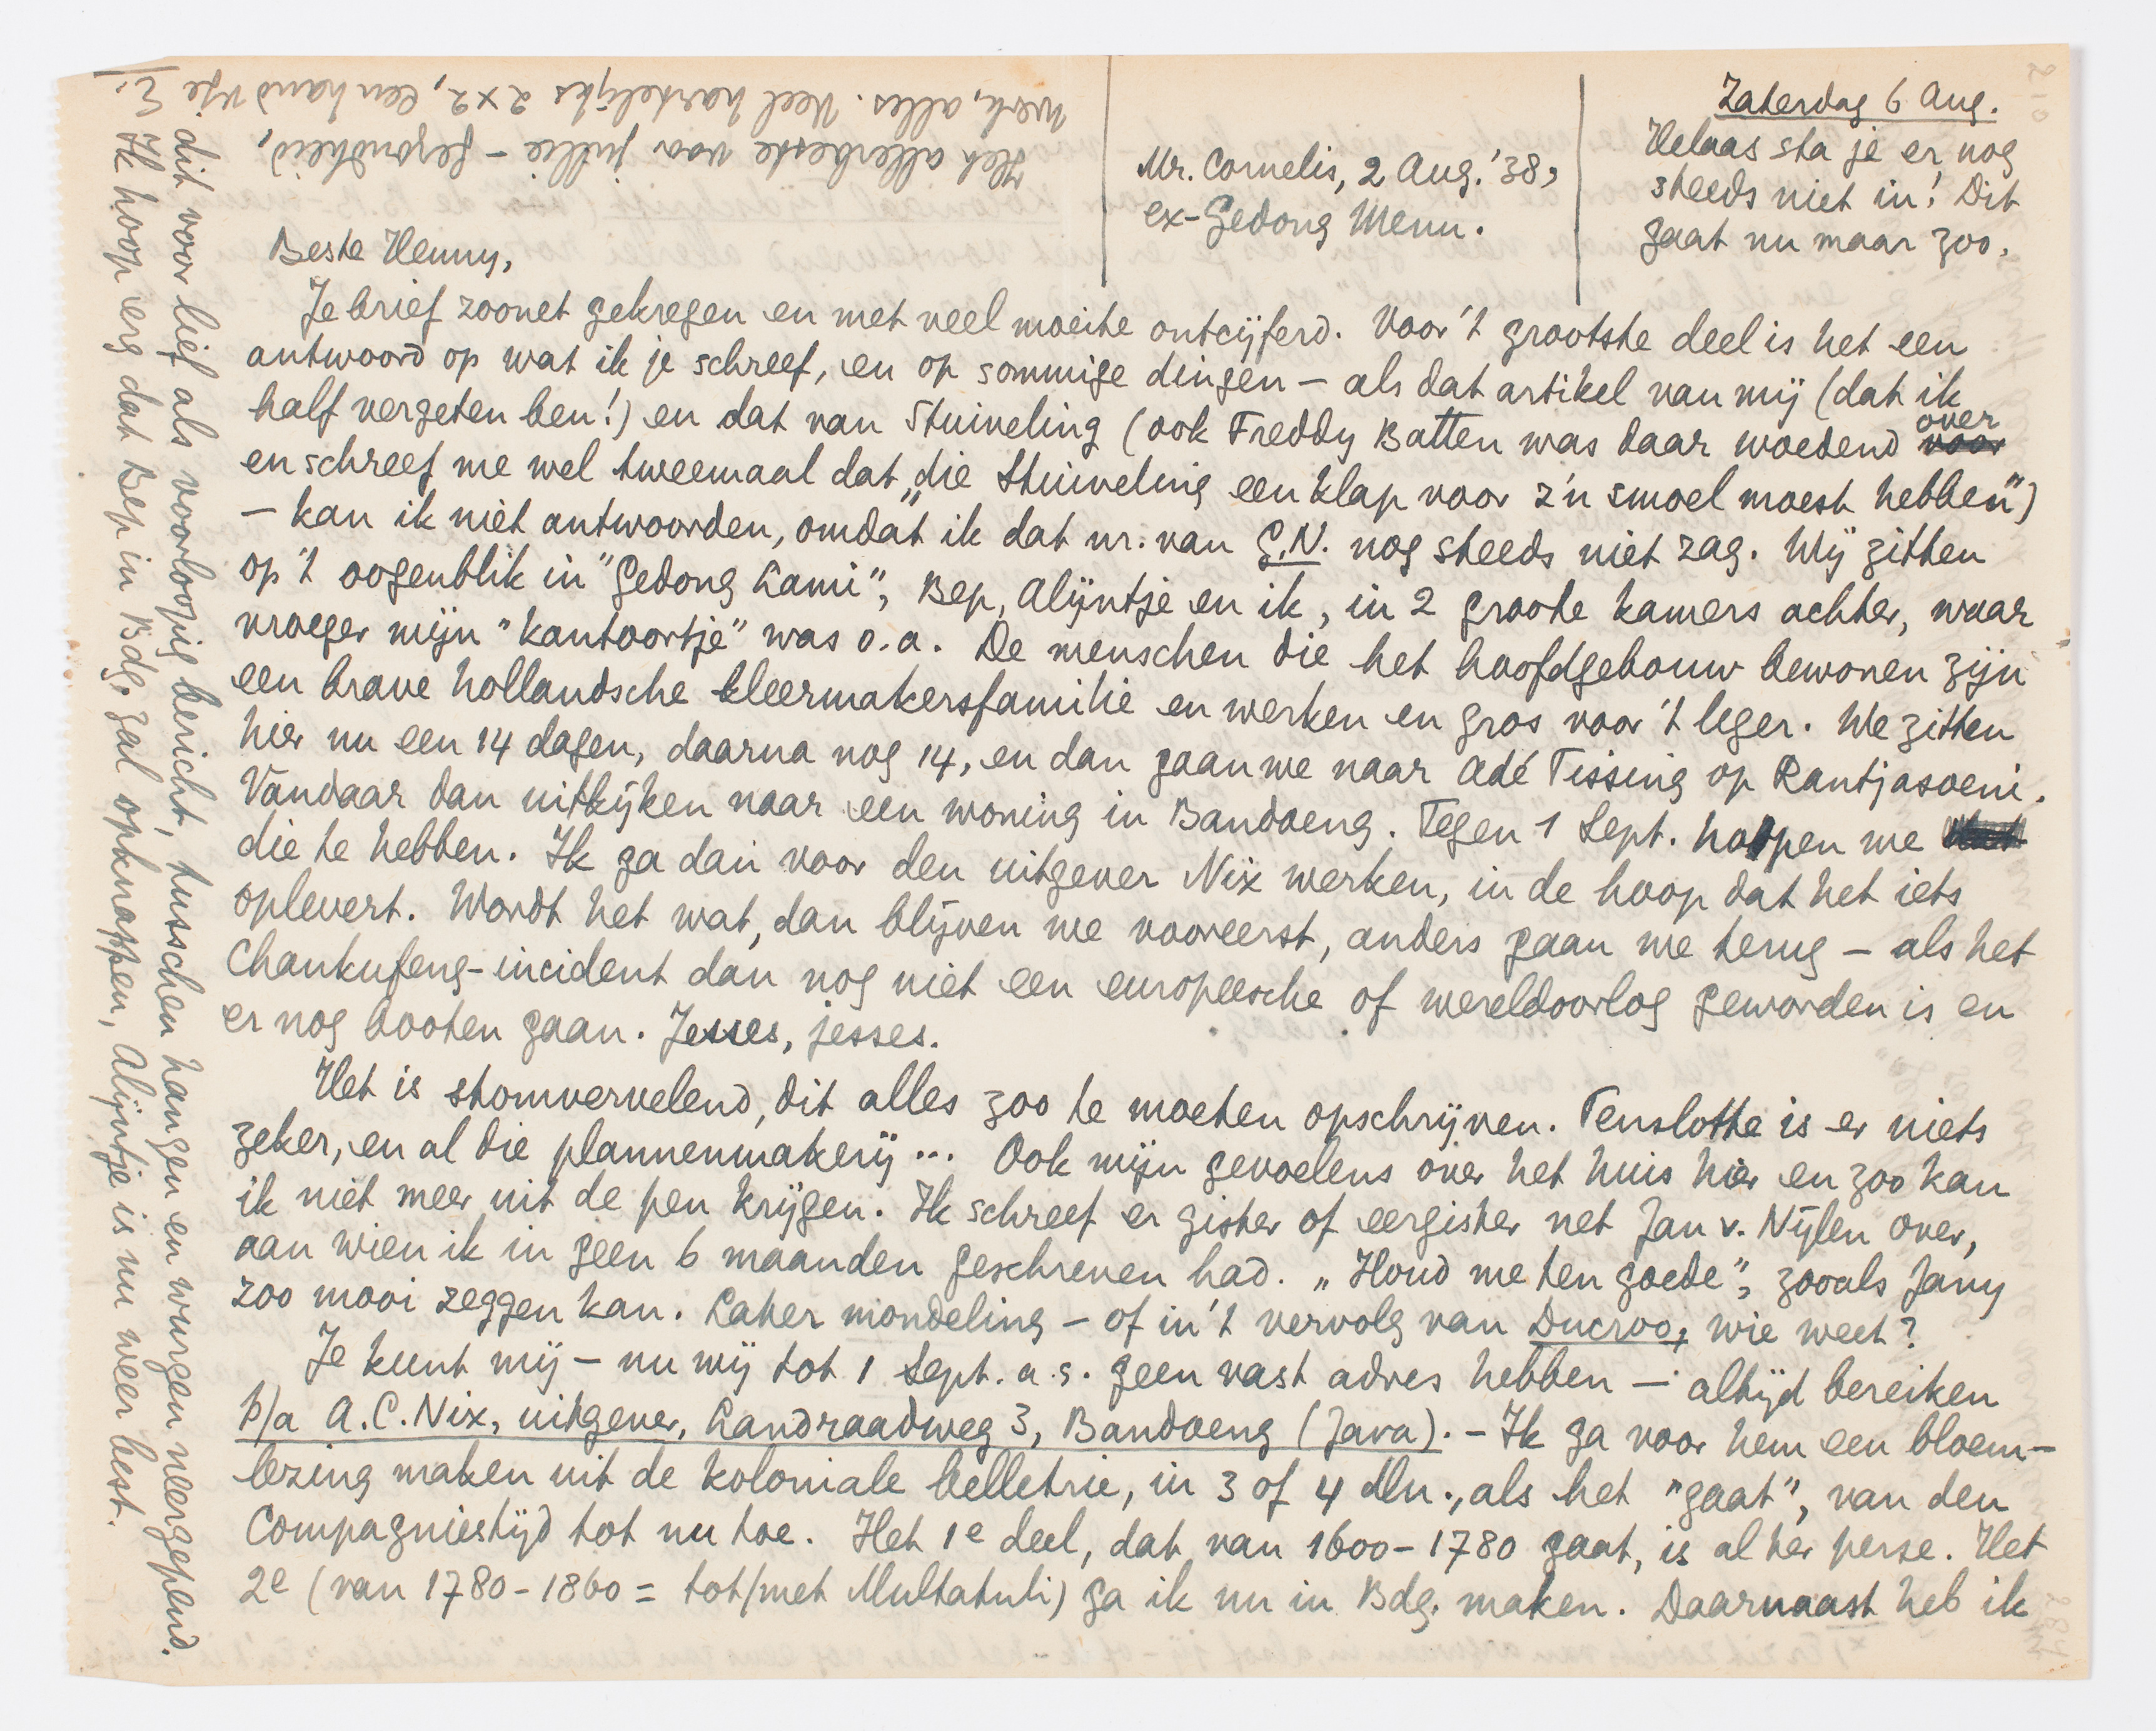 Zaterdag 6 Aug.
Helaas sta je er nog
steeds niet in! Dit
gaat nu maar zoo.
Mr. Cornelis, 2 Aug. '38,
ex-Gedong Menu.
Beste Henny,
Je brief zoonet gekregen en met veel moeite ontcijferd. Voor 't grootste deel is het een
antwoord op wat ik je schreef, en op sommige dingen – als dat artikel van mij (dat ik
half vergeten ben!) en dat van Stuiveling (ook Freddy Batten was daar woedend voor over
en schreef me wel tweemaal dat „die Stuiveling een klap voor z'n smoel moest hebben")
– kan ik niet antwoorden, omdat ik dat nr. van G.N. nog steeds niet zag. Wij zitten
op 't oogenblik in "Gedong Lami", Bep, Alijntje en ik, in 2 groote kamers achter, waar
vroeger mijn "kantoortje" was o.a. De menschen die het hoofdgebouw bewonen zijn
een brave hollandsche kleermakersfamilie en werken en gros voor 't leger. We zitten
hier nu een 14 dagen, daarna nog 14, en dan gaan we naar Adé Tissing op Rantjasoeni.
Vandaar dan uitkijken naar een woning in Bandoeng. Tegen 1 Sept. hopen we
die te hebben. Ik ga dan voor den uitgever Nix werken, in de hoop dat het iets
oplevert. Wordt het wat, dan blijven we vooreerst, anders gaan we terug – als het
Chankufeng-incident dan nog niet een europeesche of wereldoorlog geworden is en
er nog booten gaan. Jesses, jesses.
Het is stomvervelend, dit alles zoo te moeten opschrijven. Tenslotte is er niets
zeker, en al die plannenmakerij... Ook mijn gevoelens over het huis hier en zoo kan
ik niet meer uit de pen krijgen. Ik schreef er gister of eergister net Jan v. Nijlen over,
aan wien ik in geen 6 maanden geschreven had. „Houd me ten goede", zooals Jany
zoo mooi zeggen kan. Later mondeling – of in 't vervolg van Ducroo, wie weet?
Je kunt mij – nu wij tot 1 Sept. a.s. geen vast adres hebben – altijd bereiken
p/a A.C. Nix, uitgever, Landraadweg 3, Bandoeng (Java). – Ik ga voor hem een bloem-
lezing maken uit de koloniale belletrie, in 3 of 4 dln., als het "gaat", van den
Compagniestijd tot nu toe. Het 1e deel, dat van 1600-1780 gaat, is al ter perse. Het
2e (van 1780-1860 = tot/met Multatuli) ga ik nu in Bdg. maken. Daarnaast heb ik
dit voor lief als voorloopig bericht, tusschen hangen en wurgen neergepend.
Ik hoop erg dat Bep in Bdg. zal opknappen, Alijntje is nu weer best.
Het allerbeste voor jullie – gezondheid,
werk, alles. Veel hartelijks 2 x 2, een hand v je
E.